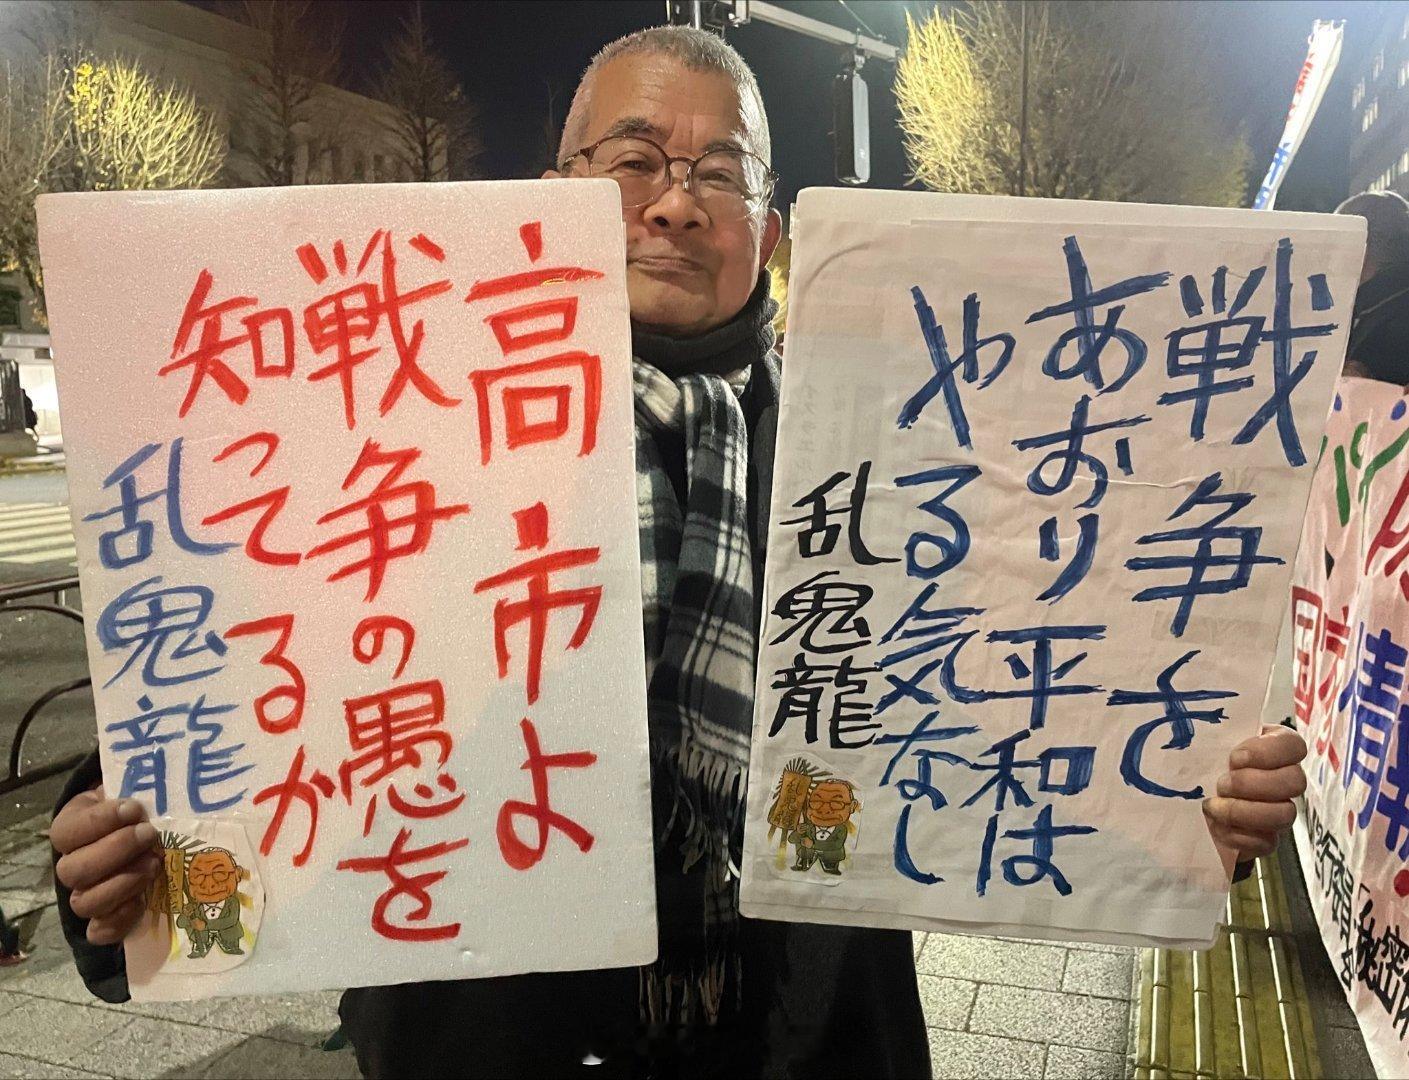 高市よ
戦争の愚を
知ってるか
乱鬼龍
戦争を
あおり平和は
やる気なし
乱鬼龍